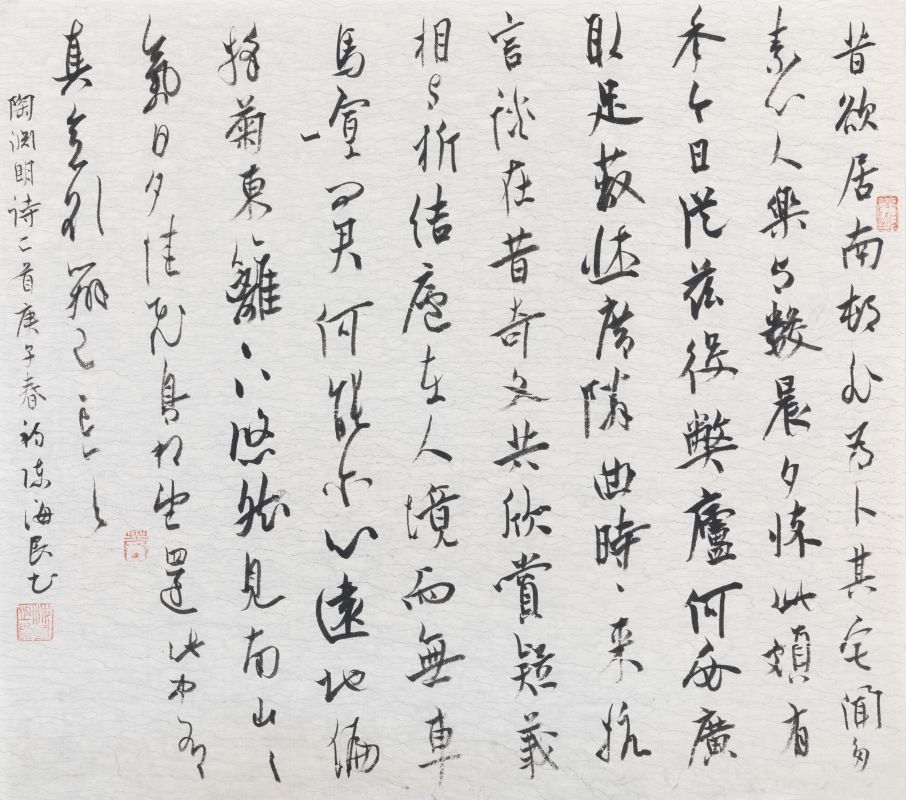 昔欲居南邨非为卜其宅闻多
素心人樂与數晨夕怀此頗有
年今日從兹役弊廬何必廣
取足蔽牀席隣曲時〻来抗
言談在昔奇文共欣賞疑義
相与析結廬在人境而無車
馬喧问君何能尔心遠地偏
採菊東籬下悠然見南山〻
氣日夕佳飞鳥相与還此中有
真意欲辨已忘言
陶渊明诗二首庚子春初陈海良书